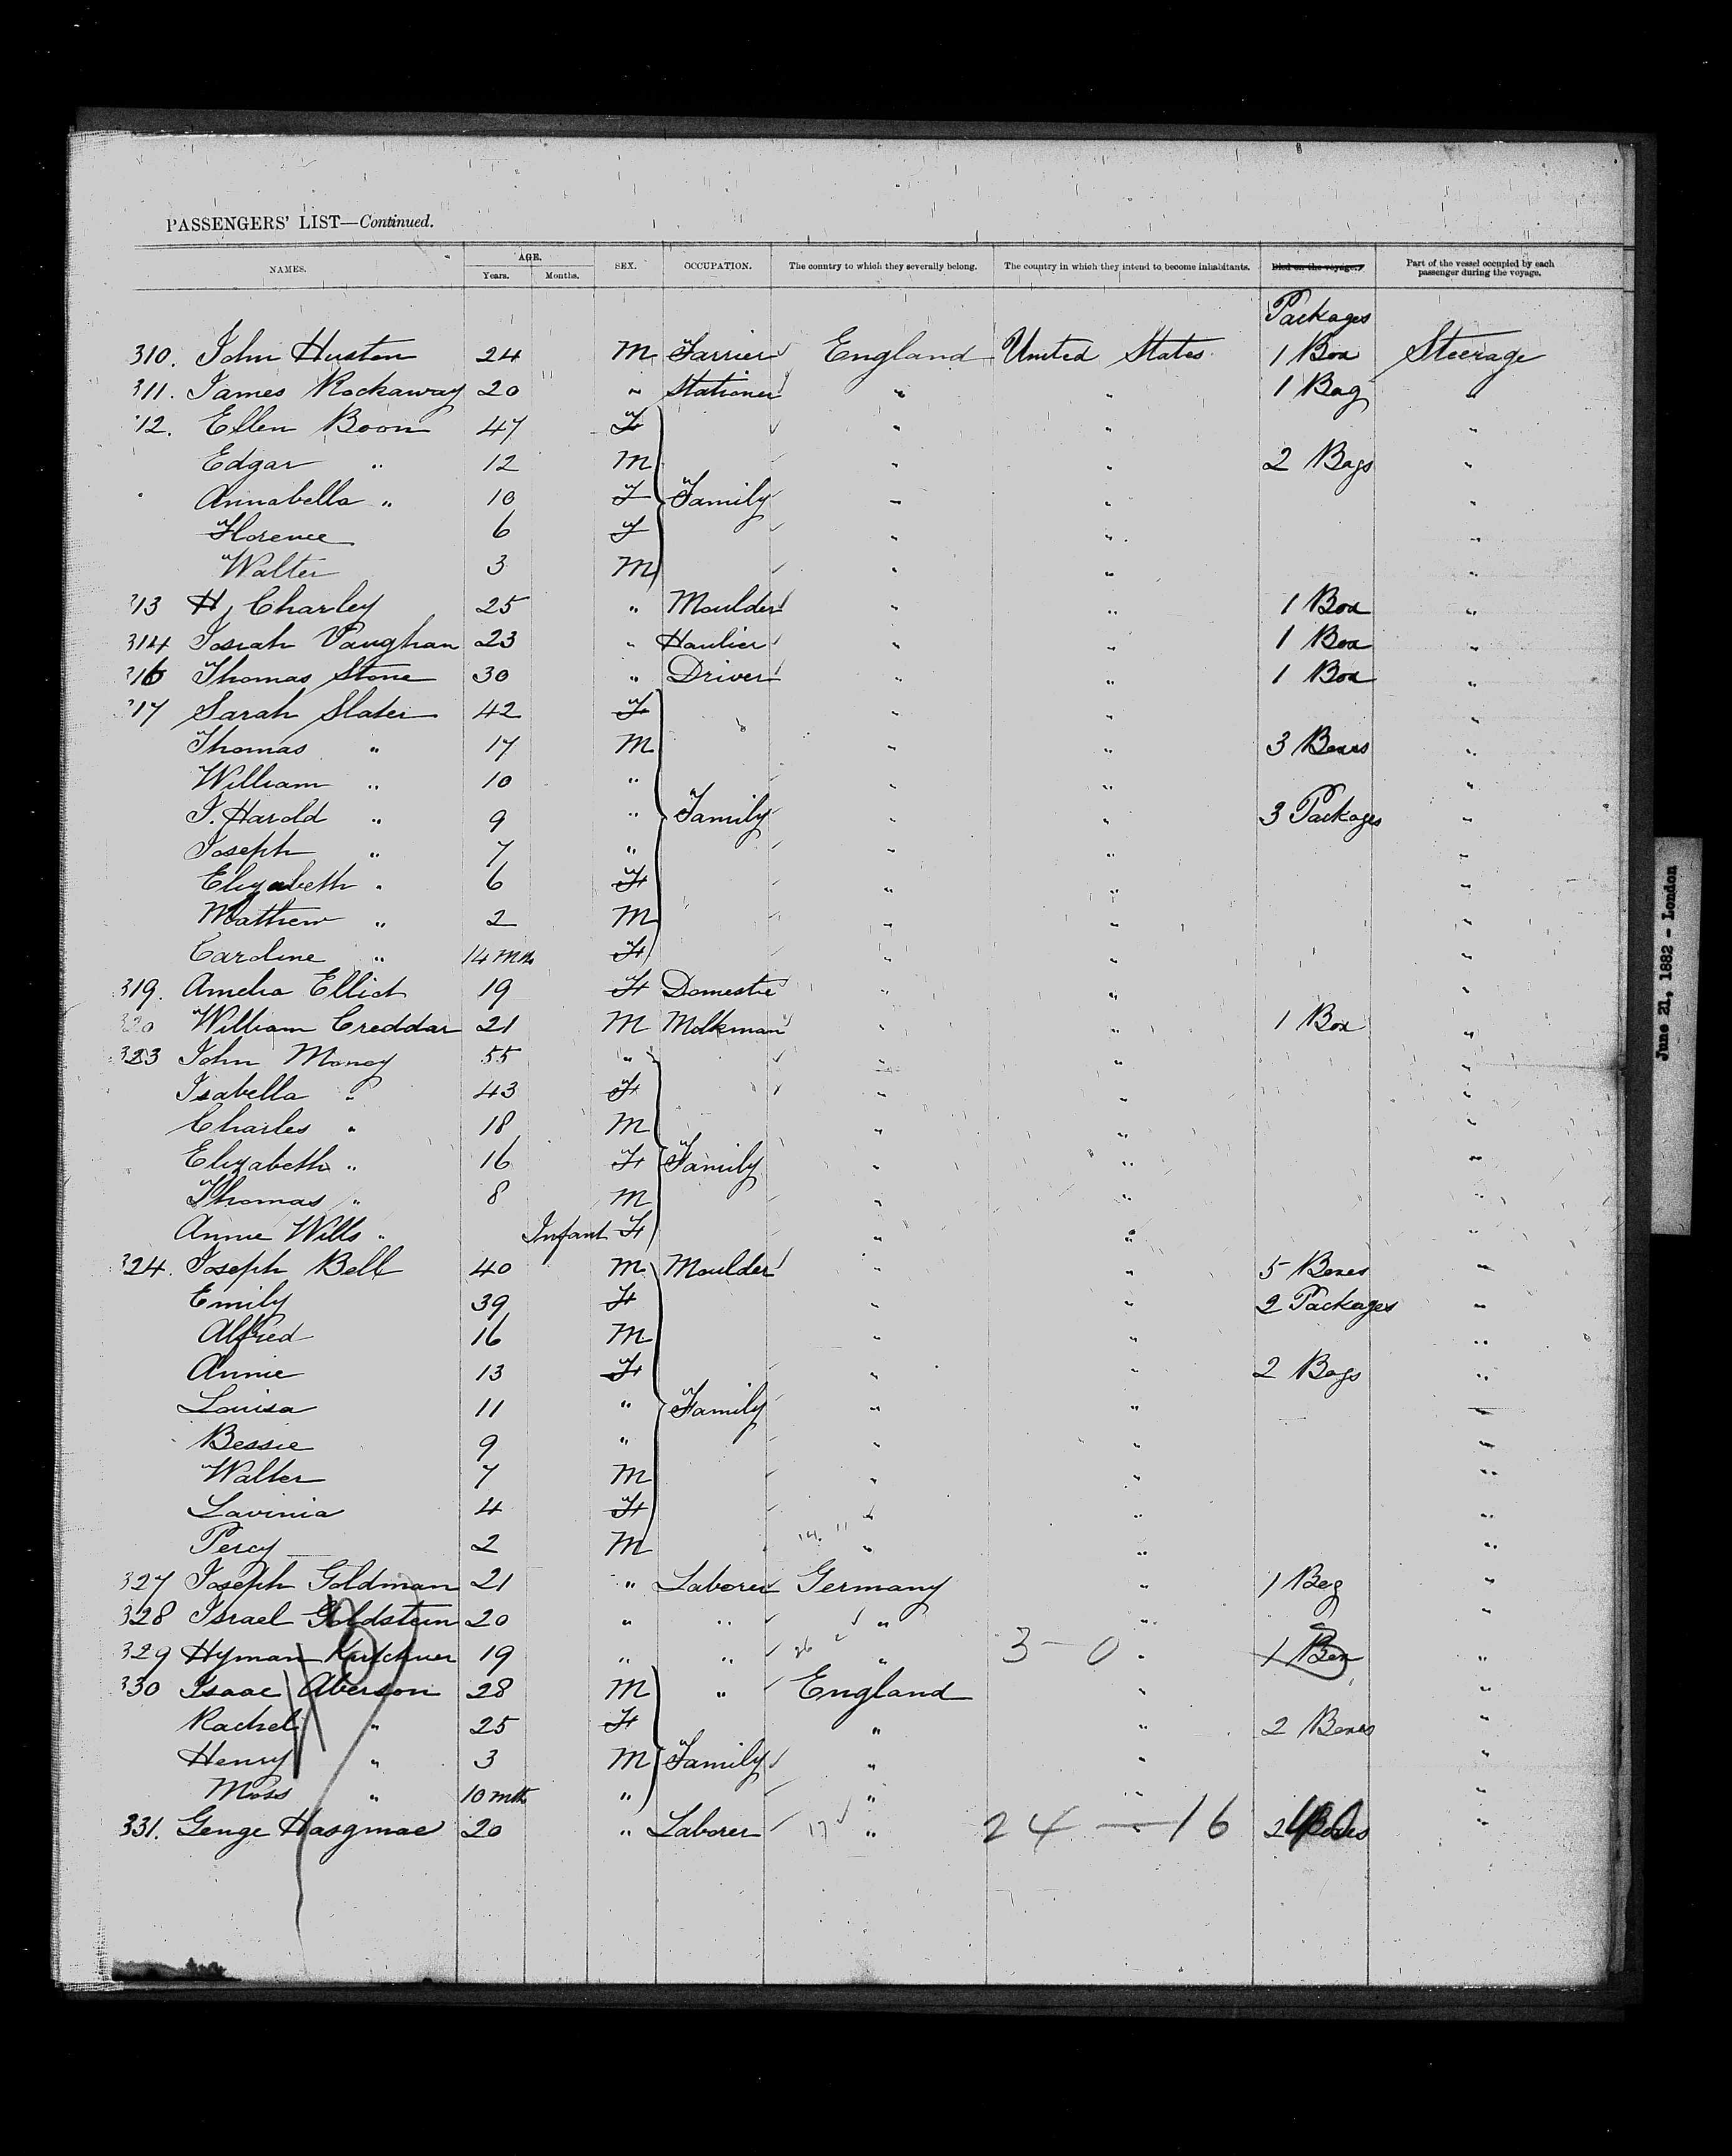 PASSENGERS' LIST—Continued.
NAMES. AGE. Years. Months. SEX. OCCUPATION. The country to which they severally belong. The country in which they intend to become inhabitants. Died on the voyage. Part of the vessel occupied by each passenger during the voyage.
Packages
310. John Huston 24 M Farrier England United States 1 Box Steerage
311. James Rockaway 20 " Stationer " " 1 Bag "
12. Ellen Boon 47 F " " "
Edgar " 12 M " " 2 Bags "
Annabella " 10 F Family " " "
Florence 6 F " " "
Walter 3 M " " "
313 H, Charley 25 " Moulder " " 1 Box "
314 Josiah Vaughan 23 " Haulier " " 1 Box "
316 Thomas Stone 30 " Driver " " 1 Box "
317 Sarah Slater 42 F " " "
Thomas " 17 M " " 3 Boxes "
William " 10 " " " "
J. Harold " 9 " Family " " 3 Packages "
Joseph " 7 " " " "
Elizabeth " 6 F " " "
Mathew " 2 M " " "
Caroline " 14 mths F " " "
319. Amelia Elliot 19 F Domestic " " "
320 William Creddar 21 M Milkman " " 1 Box "
323 John Money 55 " " " "
Isabella " 43 F " " "
Charles " 18 M " " "
Elizabeth " 16 F Family " " "
Thomas " 8 M " " "
Annie Wills " Infant F " " "
324. Joseph Bell 40 M Moulder " " 5 Boxes "
Emily 39 F " " 2 Packages "
Alfred 16 M " " "
Annie 13 F " " 2 Bags "
Louisa 11 " Family " " "
Bessie 9 " " " "
Walter 7 M " " "
Lavinia 4 F " " "
Percy 2 M 14. 11 " " "
327 Joseph Goldman 21 " Laborer Germany " 1 Bag "
328 Israel Goldstein 20 " " " " "
329 Hyman Kutchner 19 " " " 3 - 0 " 1 Box "
330 Isaac Aberson 28 M " England " "
Rachel " 25 F " " 2 Boxes "
Henry " 3 M Family " " "
Moss " 10 mth " " " "
331. George Hasgmae 20 " Laborer 17 " 24 — 16 2 Boxes "
June 21, 1882 - London